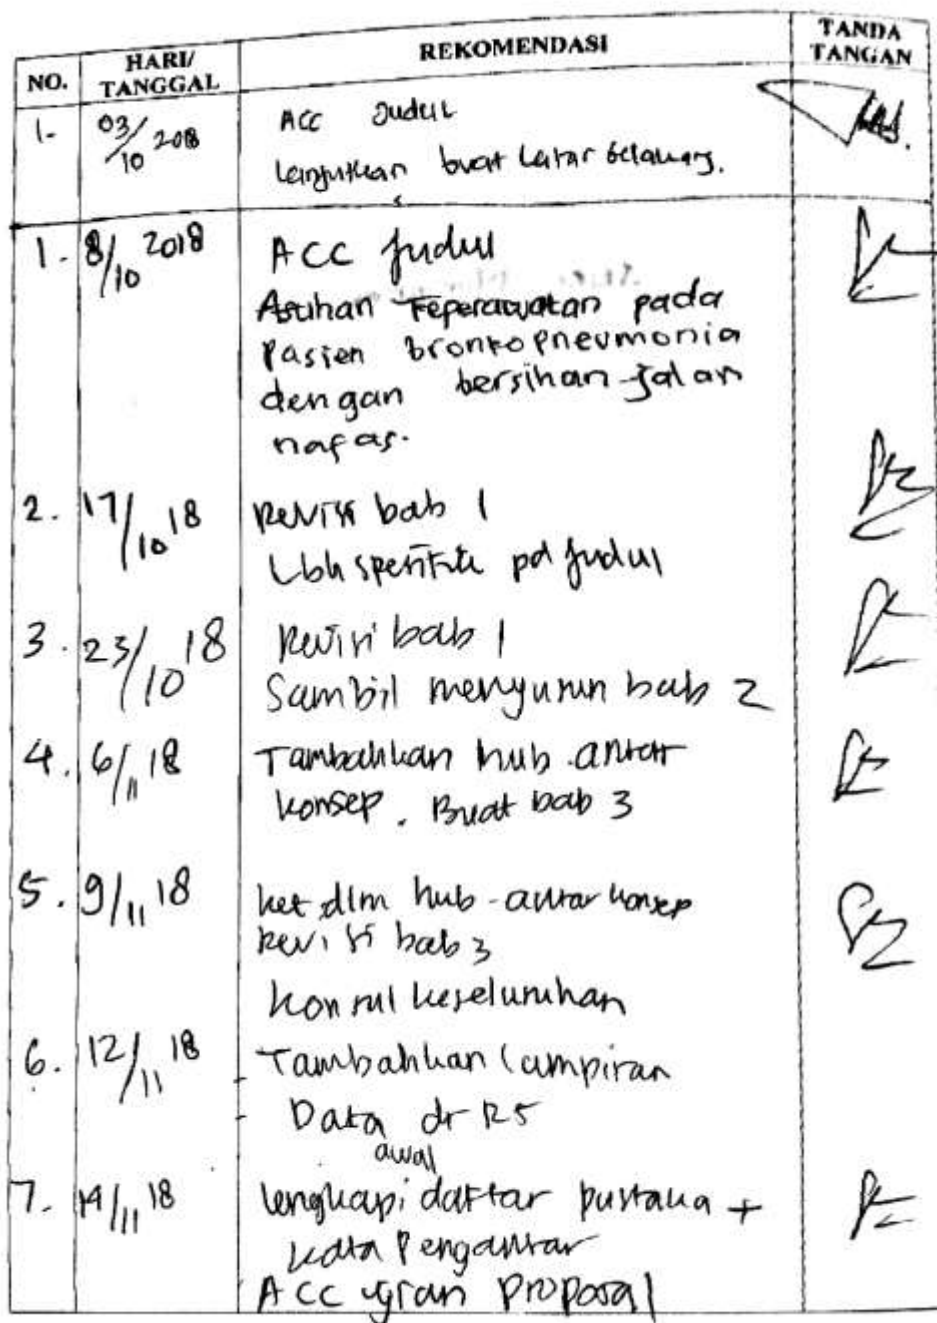 NO. HARI/ TANGGAL REKOMENDASI TANDA TANGAN
1- 03/10 2018 ACC Judul
Lanjutkan buat Latar belakang.
1. 8/10 2018 ACC Judul
Asuhan Keperawatan pada
Pasien bronkopneumonia
dengan bersihan jalan
nafas.
2. 17/10 18 Revisi bab 1
Lbh spesifik pd Judul
3. 23/10 18 Revisi bab 1
Sambil menyusun bab 2
4. 6/11 18 Tambahkan hub antar
konsep. Buat bab 3
5. 9/11 18 ket dlm hub-antar konsep
Revisi bab 3
Konsul keseluruhan
6. 12/11 18 Tambahkan lampiran
- Data dr RS
awal
7. 14/11 18 lengkapi daftar pustaka +
kata Pengantar
ACC ujian Proposal